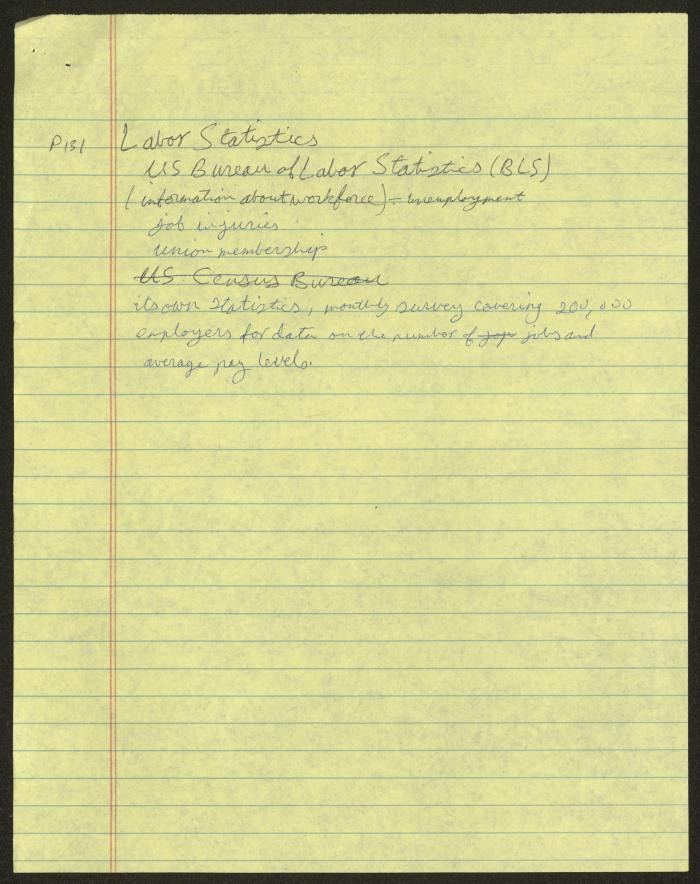 P131 Labor Statistics
US Bureau of Labor Statistics (BLS)
(information about workforce) - unemployment
job injuries
union membership
US Census Bureau
its own statistics, monthly survey covering 200,000
employers for data on the number of jops jobs and
average pay levels.